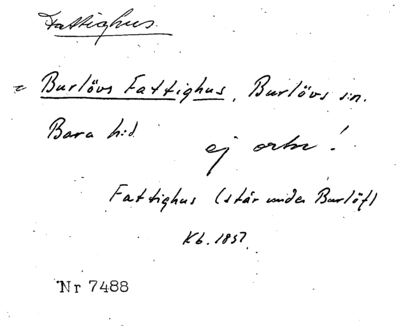 Fattighus
Burlövs Fattighus, Burlövs sn.
Bara hd.
ej ortn!
Fattighus (står under Burlöf)
Kb. 1857
Nr 7488